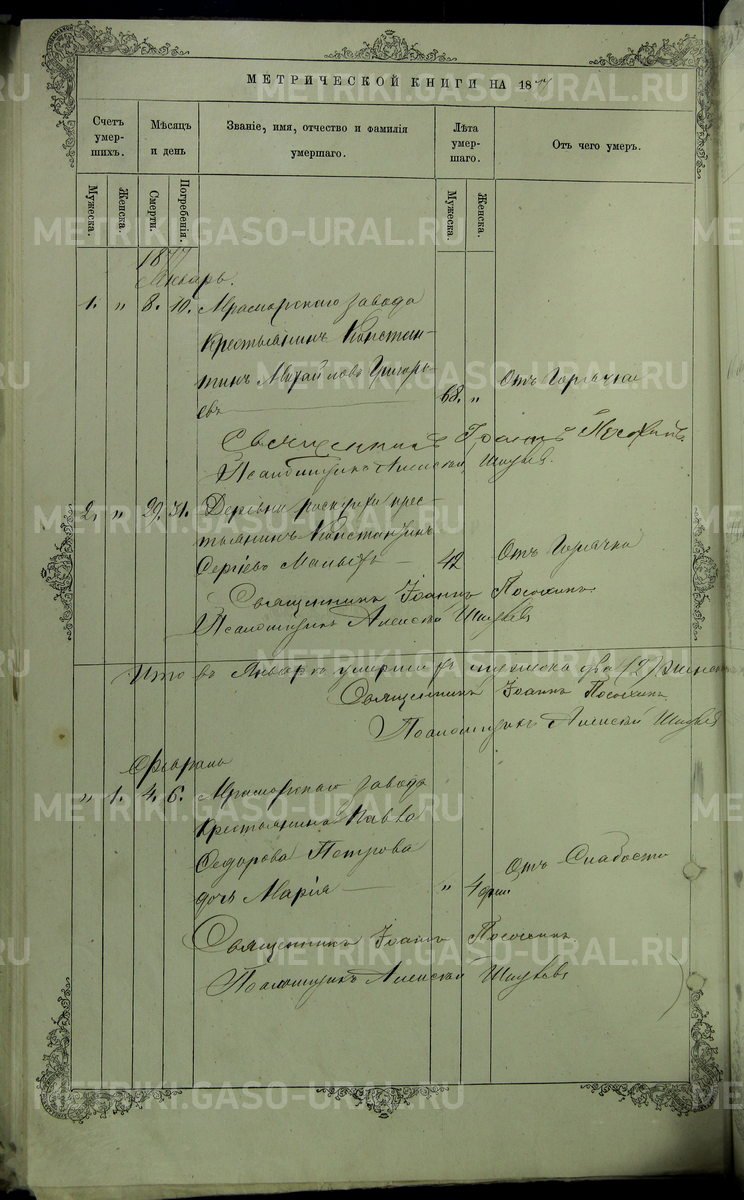 МЕТРИЧЕСКОЙ КНИГИ НА 1877
Счетъ умер-шихъ.
Мужеска.
Женска.
Мѣсяцъ и день
Смерти.
Погребенія.
Званіе, имя, отчество и фамилія умершаго.
Лѣта умер-шаго.
Мужеска.
Женска.
Отъ чего умеръ.
1877
Январь.
1. " 8. 10. Мраморскаго завода
Крестьянинъ Констан-
тинъ Михайловъ Григорь-
евъ 68. " Отъ Горячки
Священникъ Іоаннъ
Псаломщикъ Алексѣй
2. " 29. 31. Деревни крес-
тьянинъ Константинъ
Сергѣевъ 42 Отъ Горячки
Священникъ Іоаннъ
Псаломщикъ Алексѣй
Итого въ Январѣ умершихъ мужеска два (2) женска
Священникъ Іоаннъ
Псаломщикъ Алексѣй
Февраль
" 1. 4. 6. Мраморскаго завода
Крестьянина Павла
Федорова Петрова
дочь Марія " 4 дни Отъ Слабости
Священникъ Іоаннъ
Псаломщикъ Алексѣй
METRIKI.GASO-URAL.RU